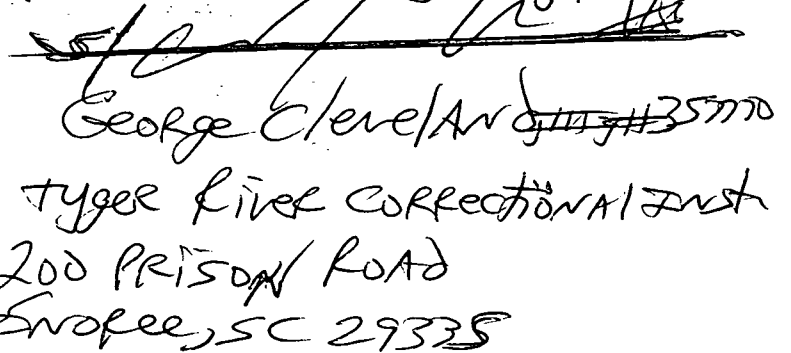 George Cleveland, III, #35770
Tyger River Correctional Inst.
200 Prison Road
Enoree, SC 29335